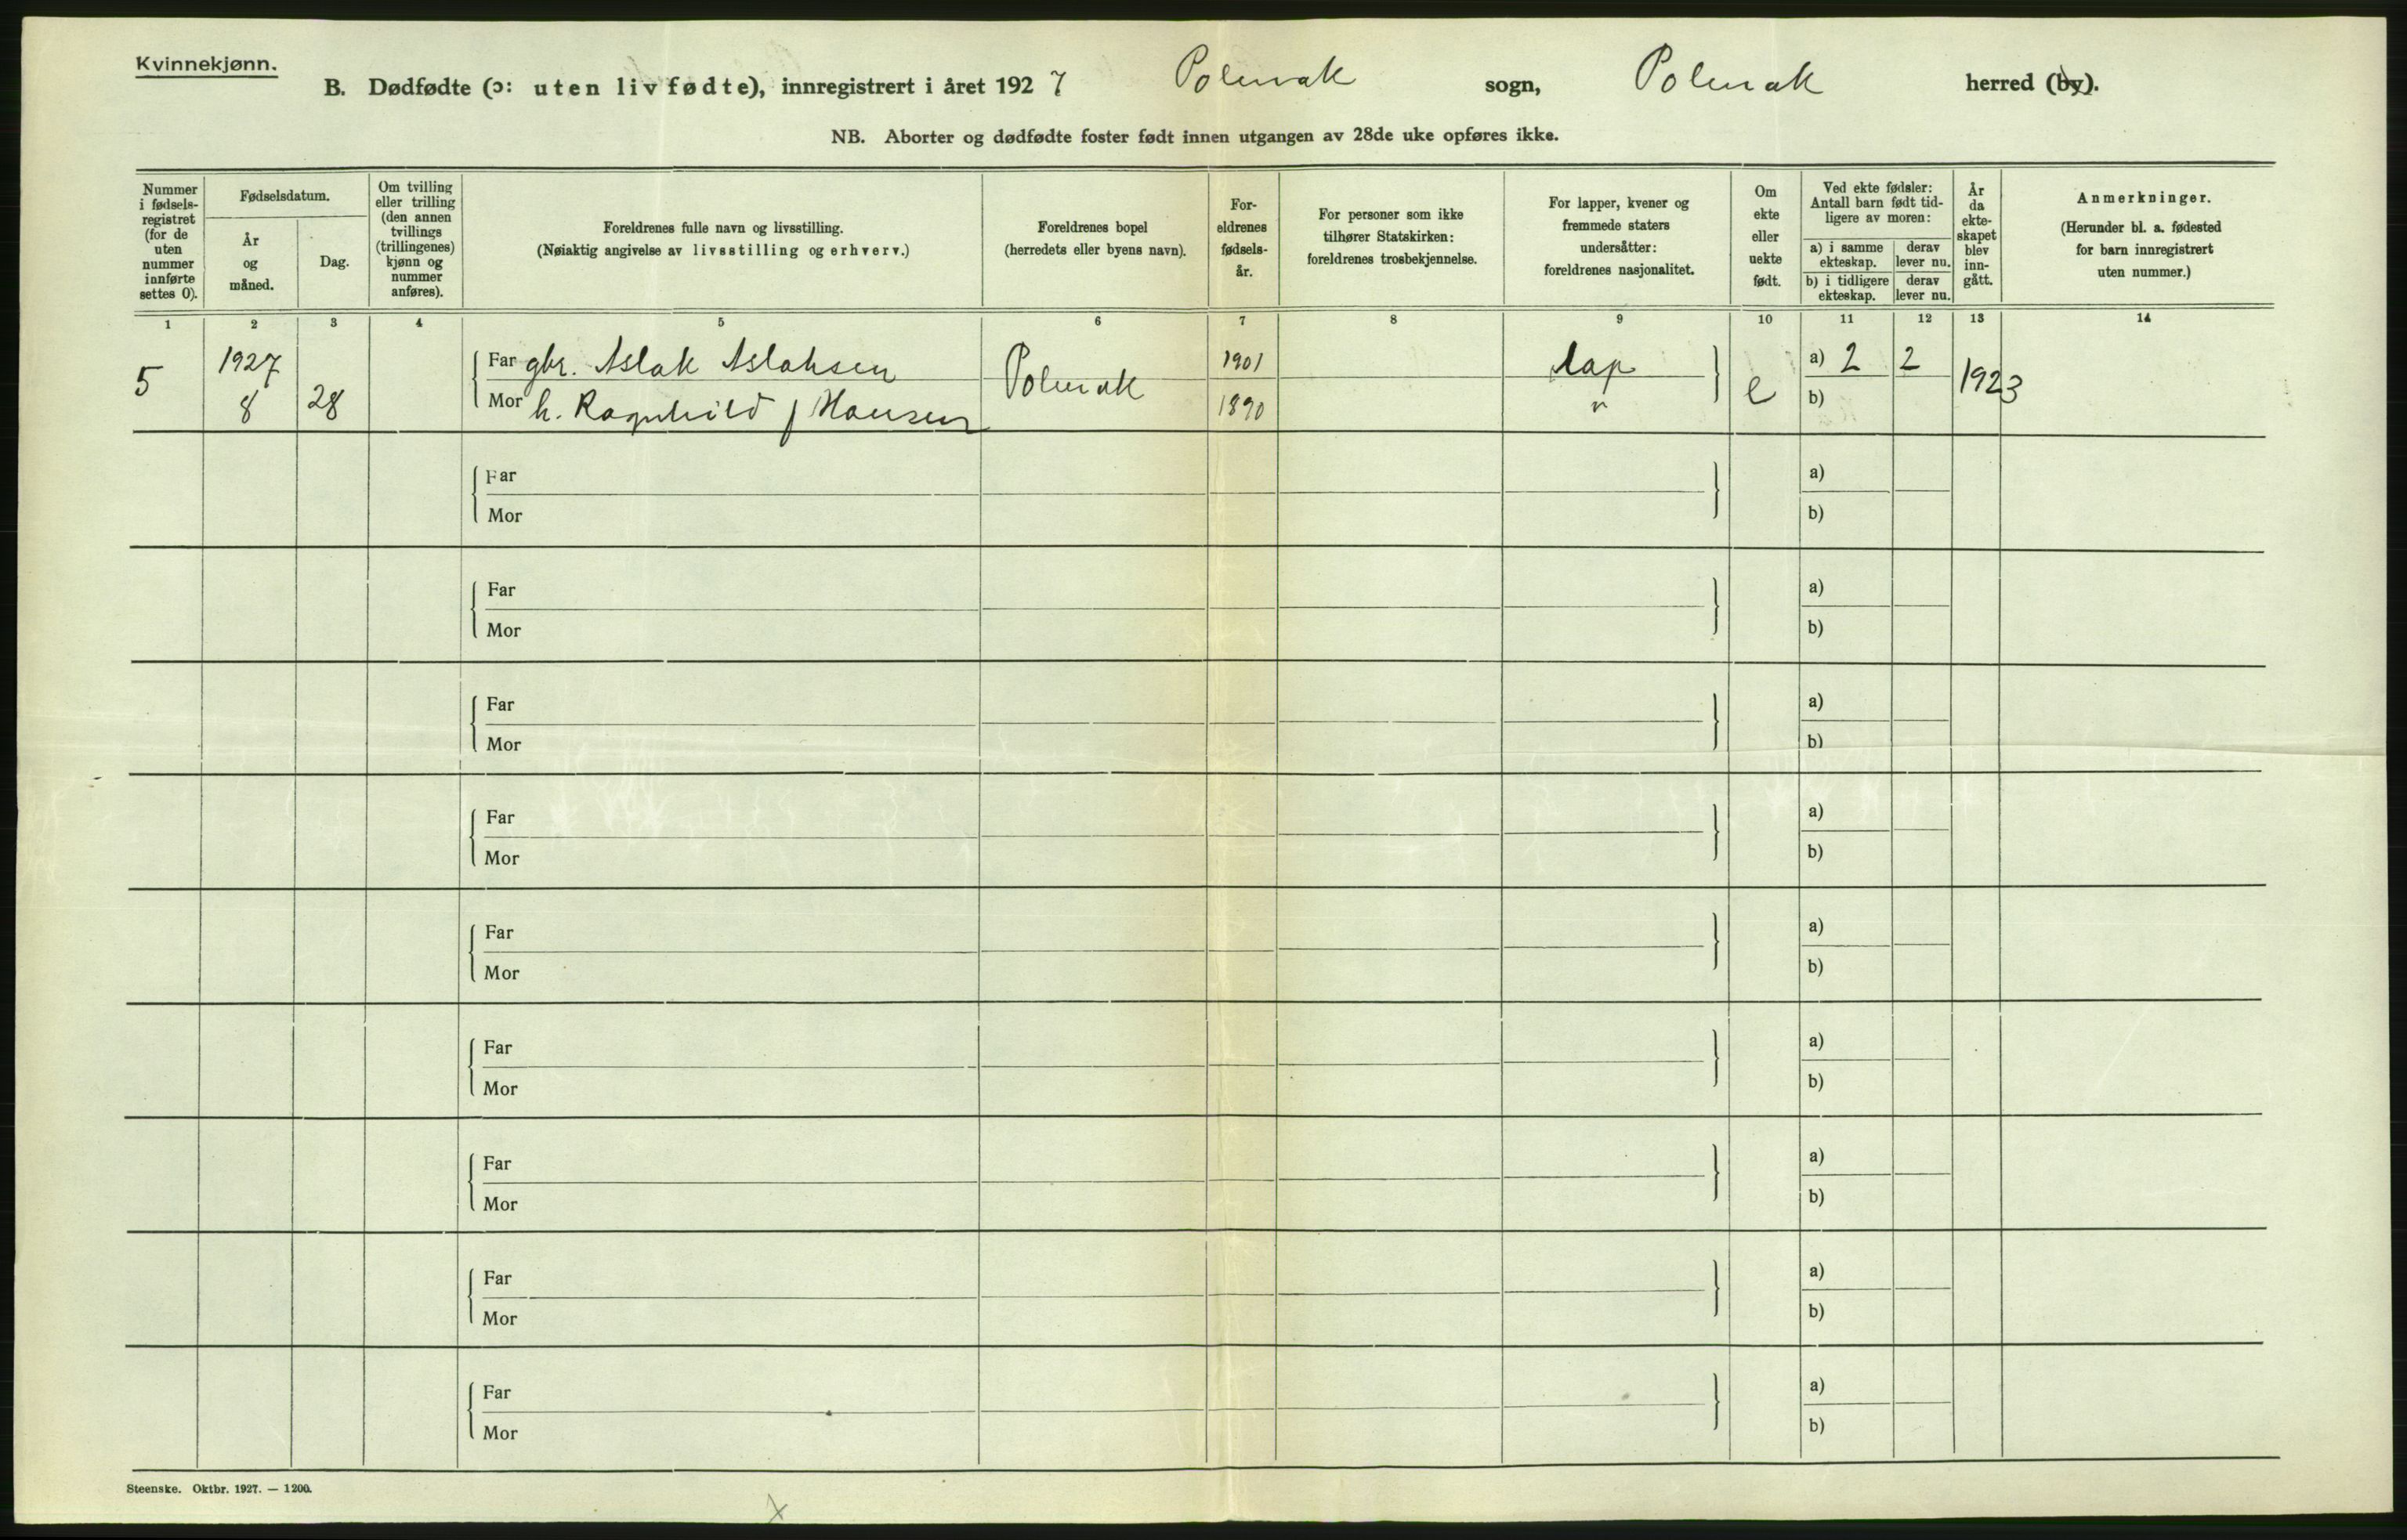 Kvinnekjønn.
B. Dødfødte (ɔ: uten liv fødte), innregistrert i året 1927 Polmak sogn, Polmak herred (by).
NB. Aborter og dødfødte foster født innen utgangen av 28de uke opføres ikke.
Nummer
i fødsels-
registret
(for de
uten
nummer
innførte
settes 0).
Fødselsdatum.
År
og
måned.
Dag.
Om tvilling
eller trilling
(den annen
tvillings
(trillingenes)
kjønn og
nummer
anføres).
Foreldrenes fulle navn og livsstilling.
(Nøiaktig angivelse av livsstilling og erhverv.)
Foreldrenes bopel
(herredets eller byens navn).
For-
eldrenes
fødsels-
år.
For personer som ikke
tilhører Statskirken:
foreldrenes trosbekjennelse.
For lapper, kvener og
fremmede staters
undersåtter:
foreldrenes nasjonalitet.
Om
ekte
eller
uekte
født.
Ved ekte fødsler:
Antall barn født tid-
ligere av moren:
a) i samme
ekteskap.
derav
lever nu.
b) i tidligere
ekteskap.
derav
lever nu.
År
da
ekte-
skapet
blev
inn-
gått.
Anmerkninger.
(Herunder bl. a. fødested
for barn innregistrert
uten nummer.)
1 2 3 4 5 6 7 8 9 10 11 12 13 14
5 1927 8 28
Far gbr. Aslak Aslaksen Polmak 1901 lap e a) 2 2 1923
Mor h. Ragnhild f Hansen 1890 " b)
Far a)
Mor b)
Far a)
Mor b)
Far a)
Mor b)
Far a)
Mor b)
Far a)
Mor b)
Far a)
Mor b)
Far a)
Mor b)
Far a)
Mor b)
Far a)
Mor b)
Steenske. Oktbr. 1927. — 1200.